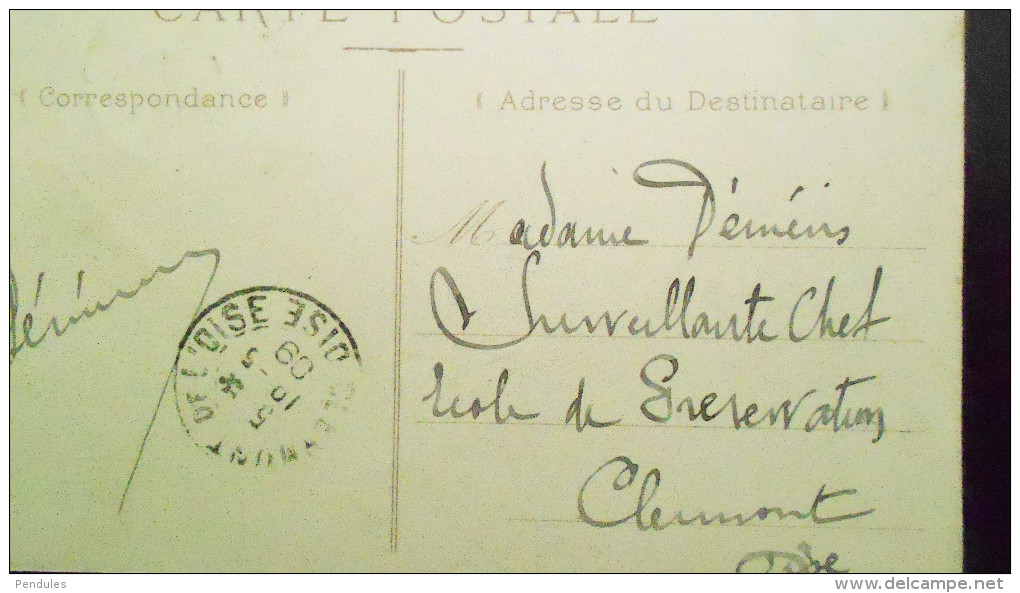 CARTE POSTALE
( Correspondance )
( Adresse du Destinataire )
Madame Déménis
Surveillante Chef
Ecole de Preservation
Clermont
Oise
CLERMONT DE L'OISE OISE
09
Pendules
www.delcampe.net